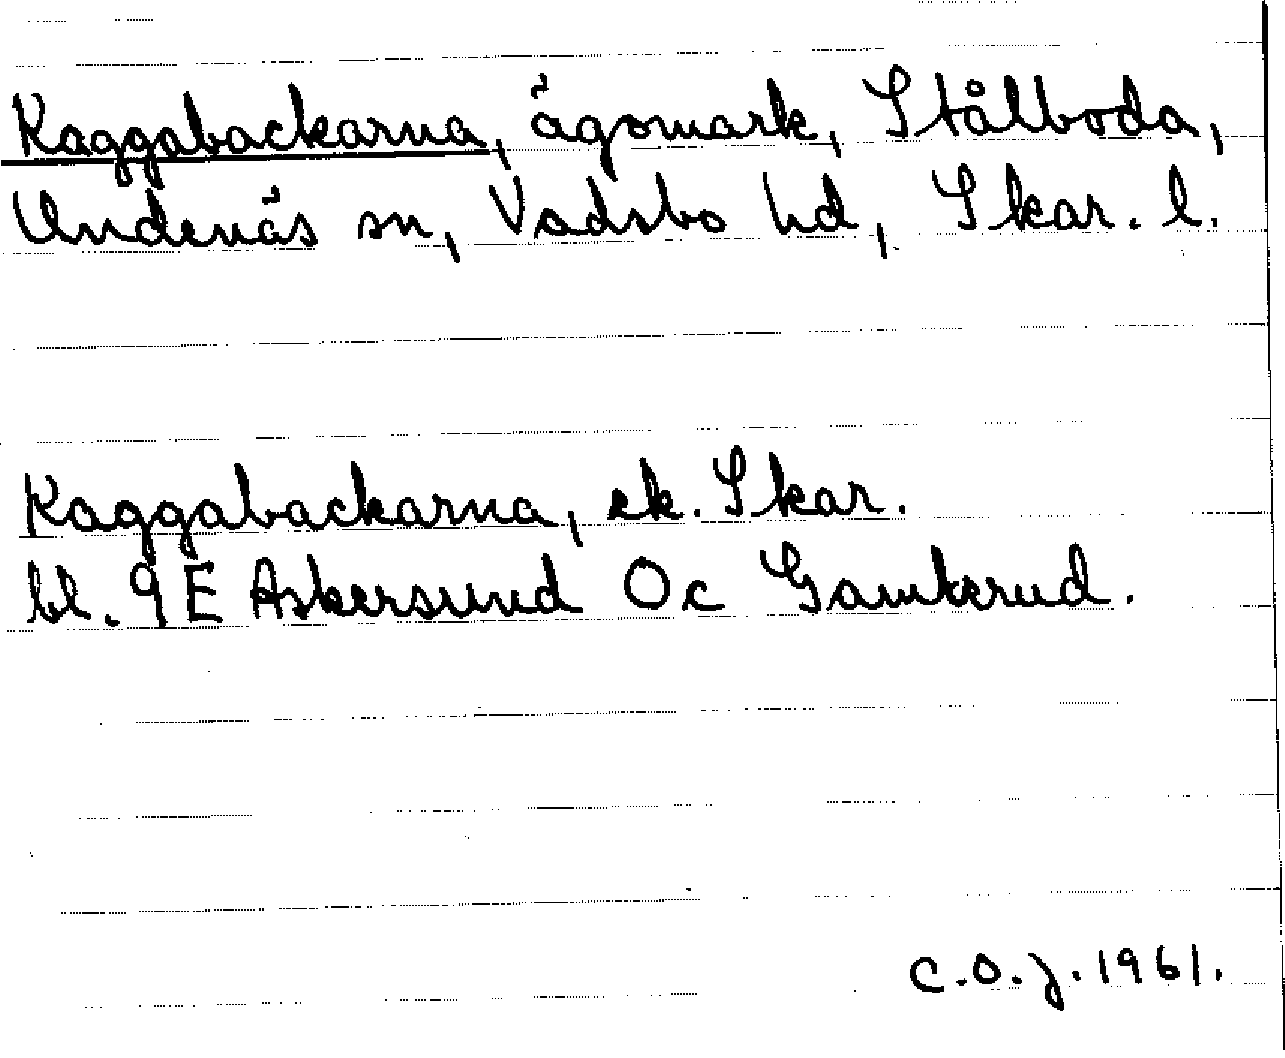 Kaggabackarna, ägomark, Stålboda,
Undenäs sn, Vadsbo hd, Skar. l.
Kaggabackarna, ek. Skar.
bl. 9 E Askersund Oc Gamkrud.
C.O.J. 1961.